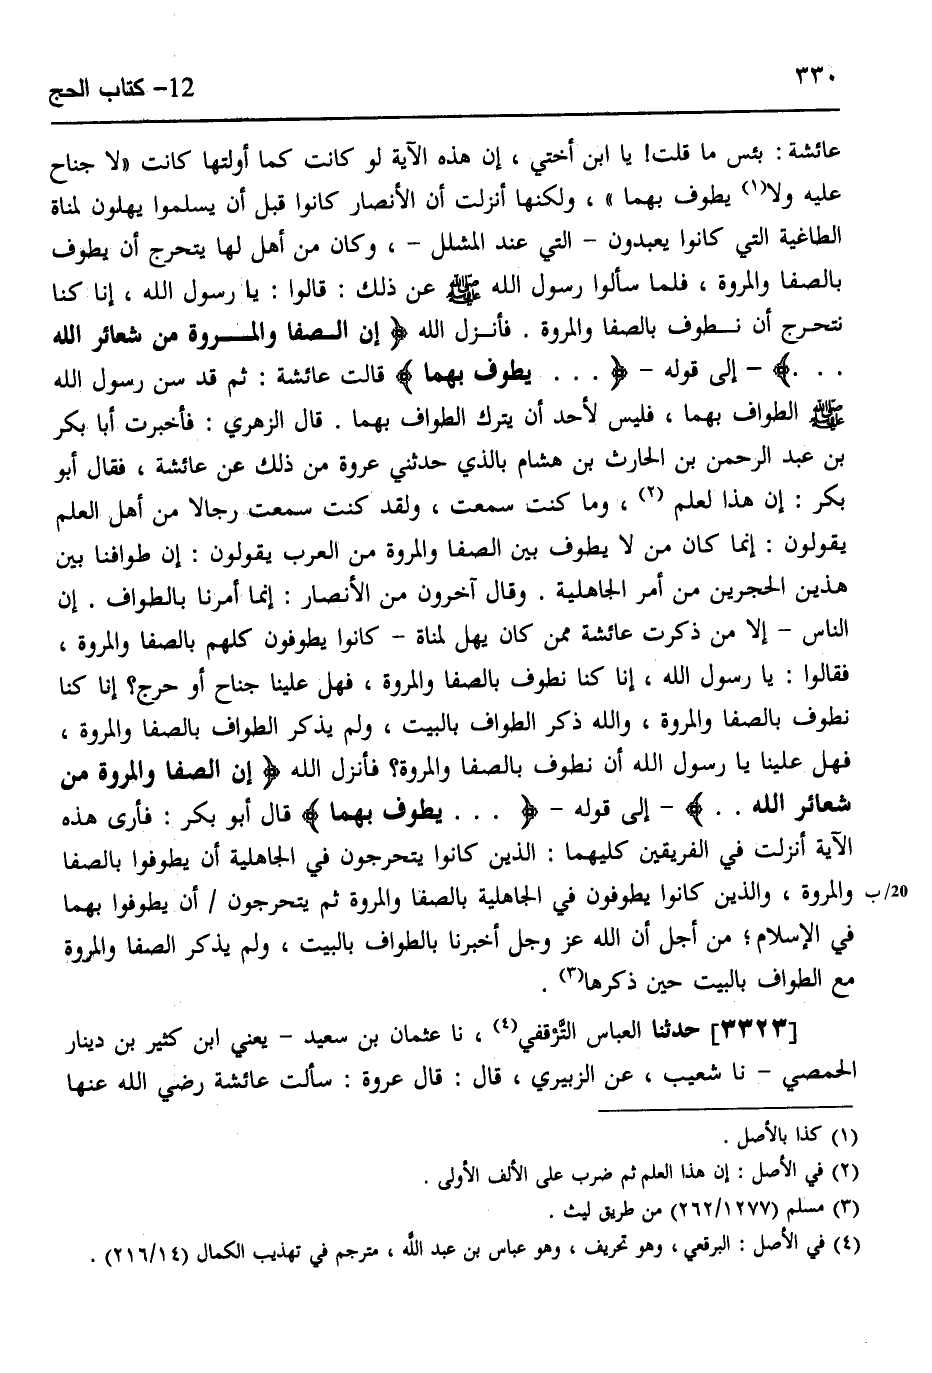 ٣٣٠
12- كتاب الحج
عائشة : بئس ما قلت! يا ابن أختي ، إن هذه الآية لو كانت كما أولتها كانت «لا جناح
عليه ولا(١) يطوف بهما » ، ولكنها أنزلت أن الأنصار كانوا قبل أن يسلموا يهلون لمناة
الطاغية التي كانوا يعبدون – التي عند المشلل – ، وكان من أهل لها يتحرج أن يطوف
بالصفا والمروة ، فلما سألوا رسول الله ﷺ عن ذلك : قالوا : يا رسول الله ، إنا كنا
نتحرج أن نطوف بالصفا والمروة . فأنزل الله ﴿ إن الصفا والمروة من شعائر الله
. . .﴾ – إلى قوله – ﴿ . . . يطوف بهما ﴾ قالت عائشة : ثم قد سن رسول الله
ﷺ الطواف بهما ، فليس لأحد أن يترك الطواف بهما . قال الزهري : فأخبرت أبا بكر
بن عبد الرحمن بن الحارث بن هشام بالذي حدثني عروة من ذلك عن عائشة ، فقال أبو
بكر : إن هذا لعلم (٢) ، وما كنت سمعت ، ولقد كنت سمعت رجالا من أهل العلم
يقولون : إنما كان من لا يطوف بين الصفا والمروة من العرب يقولون : إن طوافنا بين
هذين الحجرين من أمر الجاهلية . وقال آخرون من الأنصار : إنما أمرنا بالطواف . إن
الناس – إلا من ذكرت عائشة ممن كان يهل لمناة – كانوا يطوفون كلهم بالصفا والمروة ،
فقالوا : يا رسول الله ، إنا كنا نطوف بالصفا والمروة ، فهل علينا جناح أو حرج؟ إنا كنا
نطوف بالصفا والمروة ، والله ذكر الطواف بالبيت ، ولم يذكر الطواف بالصفا والمروة ،
فهل علينا يا رسول الله أن نطوف بالصفا والمروة؟ فأنزل الله ﴿ إن الصفا والمروة من
شعائر الله . . ﴾ – إلى قوله – ﴿ . . . يطوف بهما ﴾ قال أبو بكر : فأرى هذه
الآية أنزلت في الفريقين كليهما : الذين كانوا يتحرجون في الجاهلية أن يطوفوا بالصفا
20/ب والمروة ، والذين كانوا يطوفون في الجاهلية بالصفا والمروة ثم يتحرجون / أن يطوفوا بهما
في الإسلام؛ من أجل أن الله عز وجل أخبرنا بالطواف بالبيت ، ولم يذكر الصفا والمروة
مع الطواف بالبيت حين ذكرها(٣) .
[٣٣٢٣] حدثنا العباس التَّرْقفي(٤) ، نا عثمان بن سعيد – يعني ابن كثير بن دينار
الحمصي – نا شعيب ، عن الزبيري ، قال : قال عروة : سألت عائشة رضي الله عنها
(١) كذا بالأصل .
(٢) في الأصل : إن هذا العلم ثم ضرب على الألف الأولى .
(٣) مسلم (٢٦٢/١٢٧٧) من طريق ليث .
(٤) في الأصل : البرقعي ، وهو تحريف ، وهو عباس بن عبد اللَّه ، مترجم في تهذيب الكمال (٢١٦/١٤) .